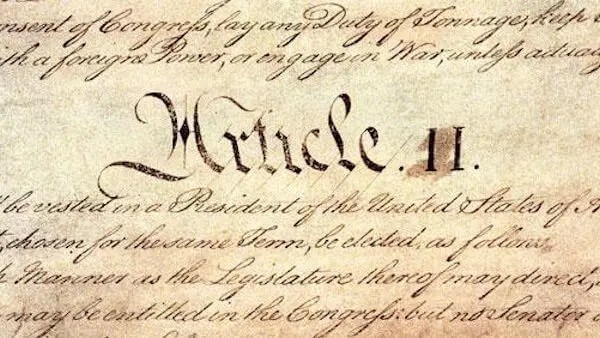 onsent of Congress, lay any Duty of Tonnage, keep
th a foreign Power, or engage in War, unless actua
Article. II.
l be vested in a President of the United States of A
t, chosen for the same Term, be elected, as follows
h Manner as the Legislature thereof may direct,
may be entitled in the Congress: but no Senator